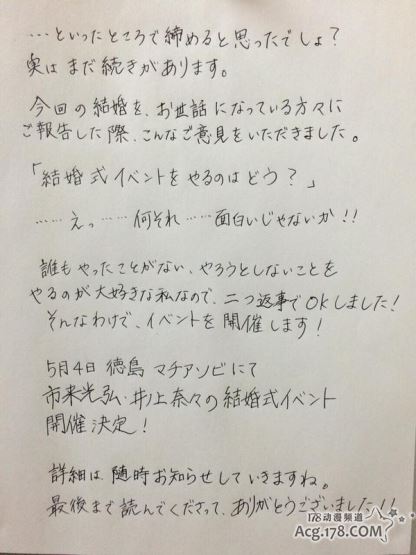 …といったところで締めると思ったでしょ？
実はまだ続きがあります。
今回の結婚を、お世話になっている方々に
ご報告した際、こんなご意見をいただきました。
「結婚式イベントをやるのはどう？」
……えっ……何それ……面白いじゃないか!!
誰もやったことがない、やろうとしないことを
やるのが大好きな私なので、二つ返事でOKしました！
そんなわけで、イベントを開催します！
5月4日 徳島 マチアソビにて
市来光弘・井ノ上奈々の結婚式イベント
開催決定！
詳細は随時お知らせしていきますね。
最後まで読んでくださって、ありがとうございました!!
178动漫频道
Acg.178.COM